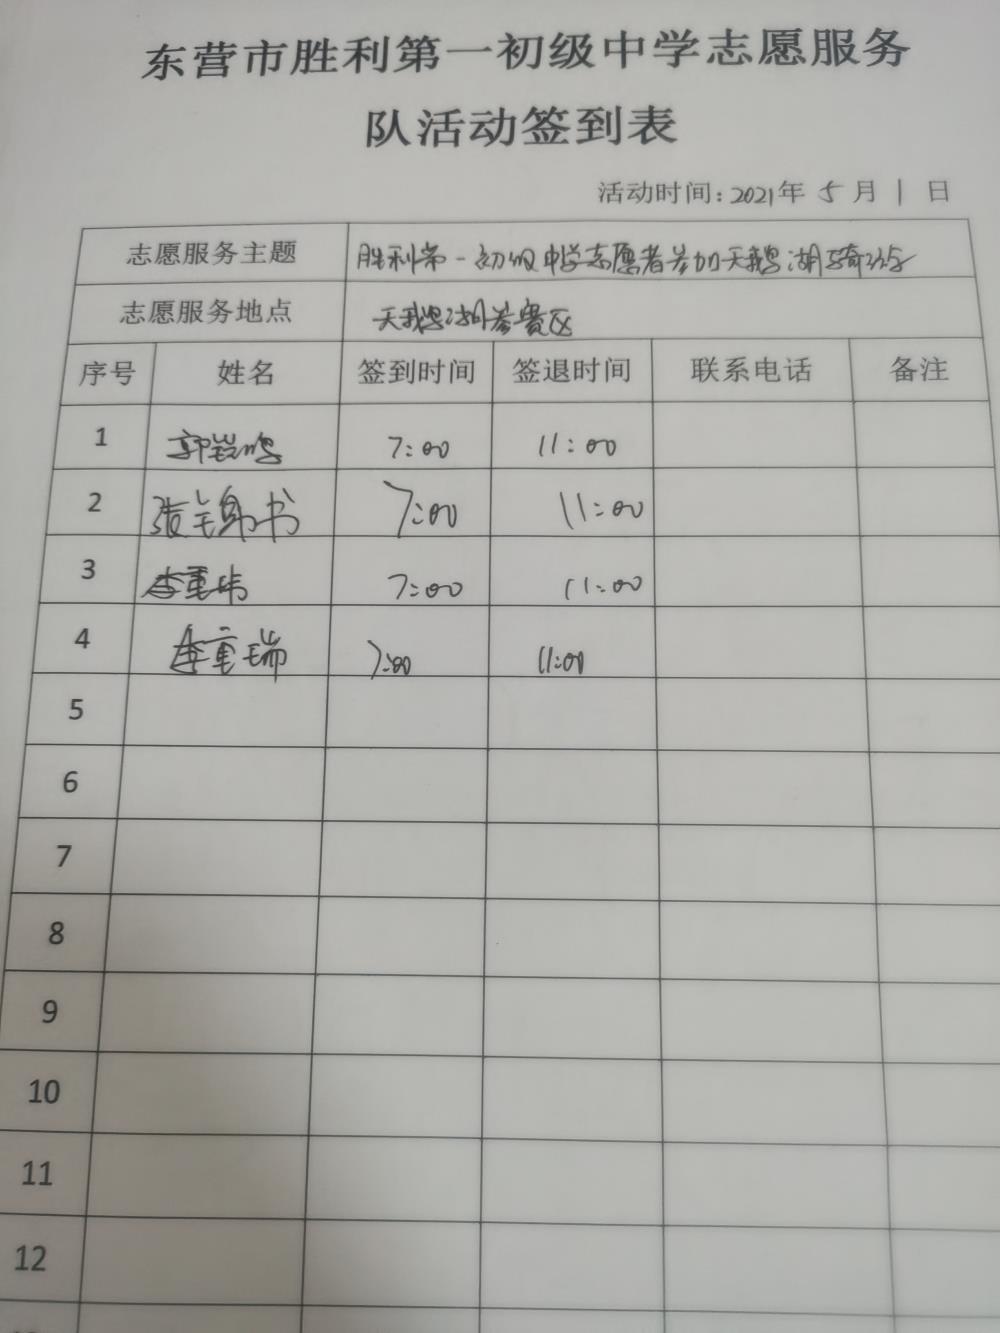 东营市胜利第一初级中学志愿服务
队活动签到表
活动时间:2021年 5 月 1 日
志愿服务主题 胜利第一初级中学志愿者参加天鹅湖骑行
志愿服务地点 天鹅湖参赛区
序号 姓名 签到时间 签退时间 联系电话 备注
1 7:00 11:00
2 张锦书 7:00 11:00
3 李重玮 7:00 11:00
4 李重瑞 7:00 11:00
5
6
7
8
9
10
11
12